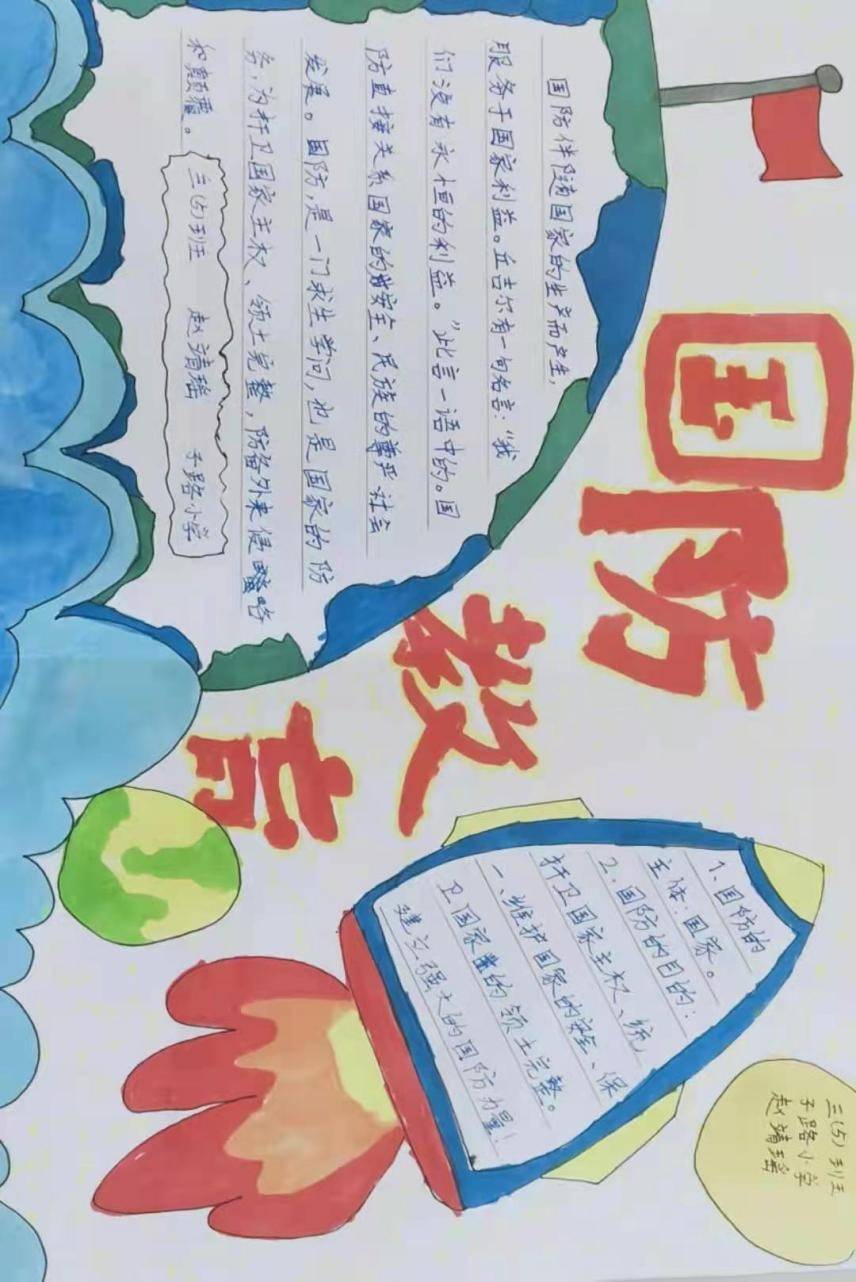 国防教育
国防伴随国家的生产而产生,
服务于国家利益。丘吉尔有一句名言:“我
们没有永恒的利益。”此言一语中的。国
防直接关系国家的安全、民族的尊严社会
发展。国防,是一门求生学问,也是国家的防
务,为扞卫国家主权、领土完整,防备外来侵略
和颠覆。
三(5)班 赵靖瑶 子路小学
1、国防的
主体:国家。
2、国防的目的:
扞卫国家主权、统
一、维护国家的安全、保
卫国家的领土完整。
建立强大的国防力量!
三(5)班
子路小学
赵靖瑶